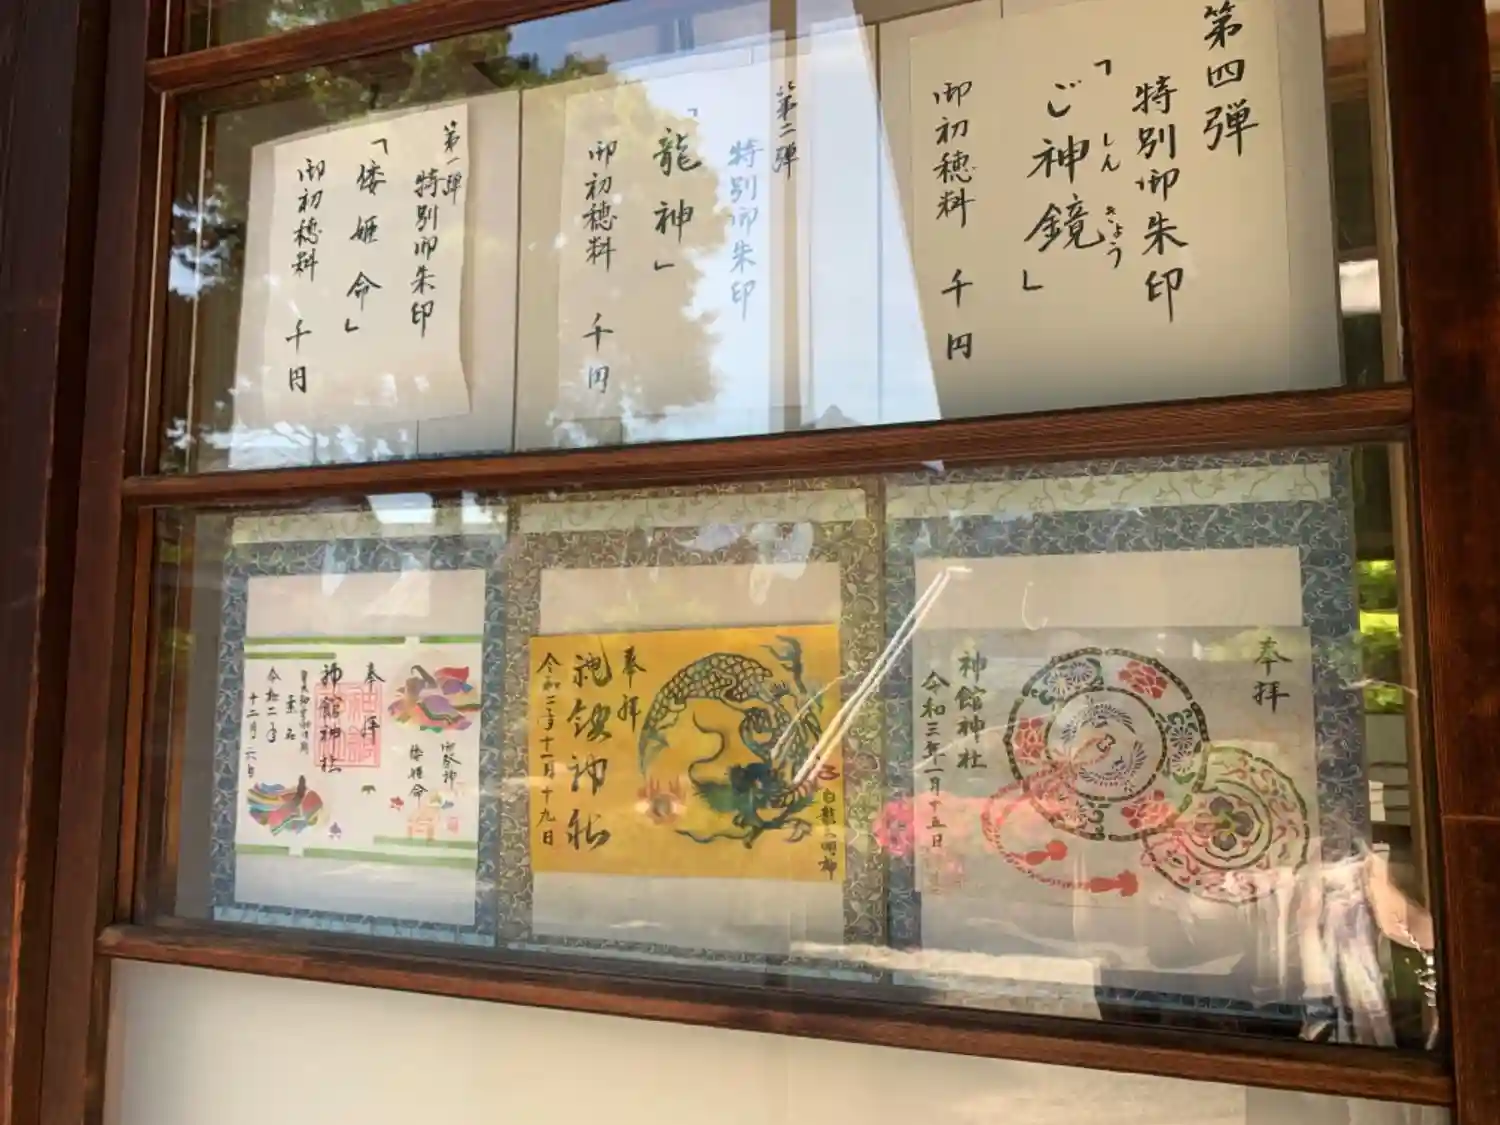 第四弾
特別御朱印
「ご神鏡」
しんきょう
御初穂料 千円
第二弾
特別御朱印
「龍神」
御初穂料 千円
第一弾
特別御朱印
「倭姫命」
御初穂料 千円
奉拝
神館神社
令和三年一月十五日
奉拝
神館神社
令和二年十一月十九日
白龍大明神
奉拝
神館神社
倭姫命
令和二年
十二月二六日